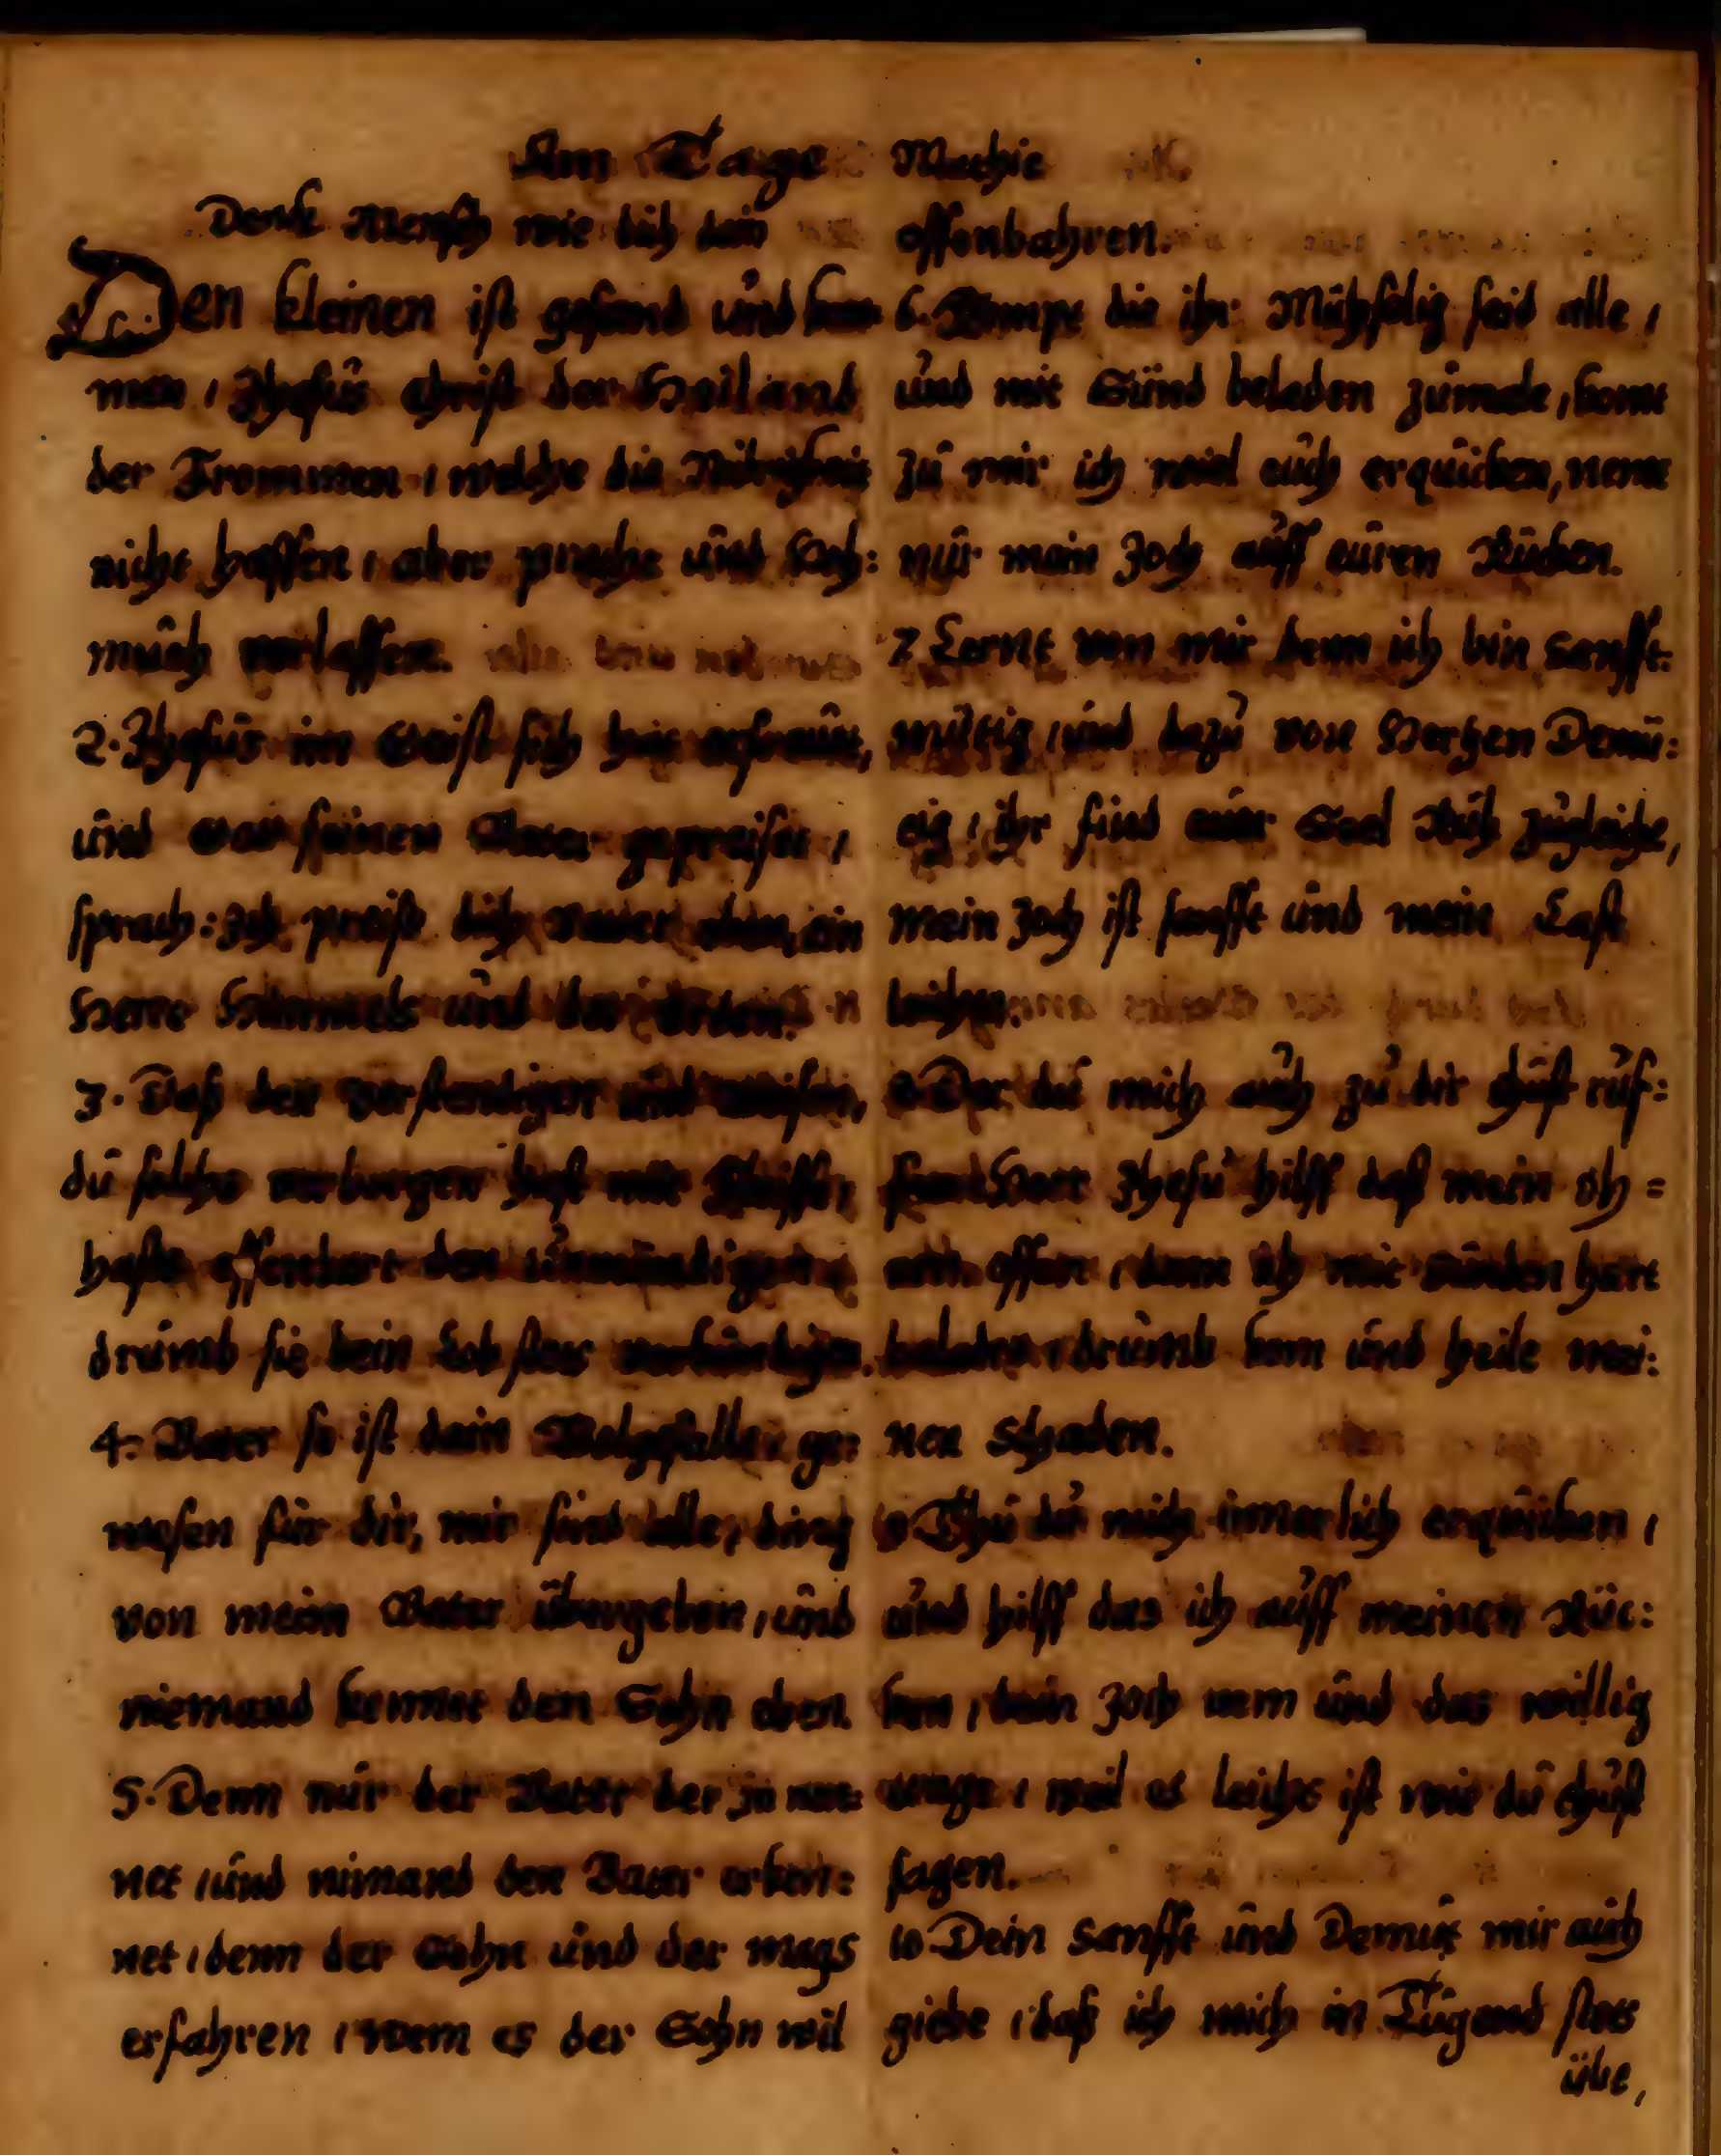 Am Tage Mathie
Denk Mensch wie dich dein
Den kleinen ist gesand und kom
men, Jhesus christ der Heiland
der Frommen, welche die Nidrigkeit
nicht hassen, aber pracht und Hoh:
muth verlassen.
2. Jhesus im Geist sich hoch erfreut,
und Gott seinen Vater gepreiset,
sprach: Ich preise dich Vater ein
Herre Himmels und der Erden.
3. Daß den verstendigen und weisen,
du solchs verborgen hast mit
haste offenbart den unmündigen,
drumb sie dein Lob stets verkündigen.
4. Vater so ist dein Wolgefallen ge:
wesen für dir, mir sind alle, ding
von meim Vater übergeben, und
niemand kennet den Sohn eben.
5. Denn nur der Vater der jn nen:
net, und nimand den Vater erken:
net, denn der Sohn und der mags
erfahren, wem es der Sohn wil
offenbahren.
6. Kompt die ihr Mühselig seid alle,
und mit Sünd beladen zumale, komt
zu mir ich wiel euch erquicken, nemt
nur mein Joch auff euren Rücken.
7 Lernt von mir denn ich bin Sanfft:
mütig, und dazu von Hertzen Demü:
tig, ihr find eur Seel Ruh zugleiche,
mein Joch ist sanfft und meine Last
leichte.
8 Der du mich auch zu dir thust ruf:
fen Herr Jhesu hilff daß mein oh=
ren offen, denn ich mit Sünden hart
beladen, drumb kom und heile mei:
nen Schaden.
9 Thu du mich innerlich erquicken,
und hilff das ich auff meinen Rüc:
ken, dein Joch nem und das willig
trage, weil es leicht ist wie du thust
sagen.
10 Dein Sanfft und Demut mir auch
giebe, daß ich mich in Tugend stets
übe,